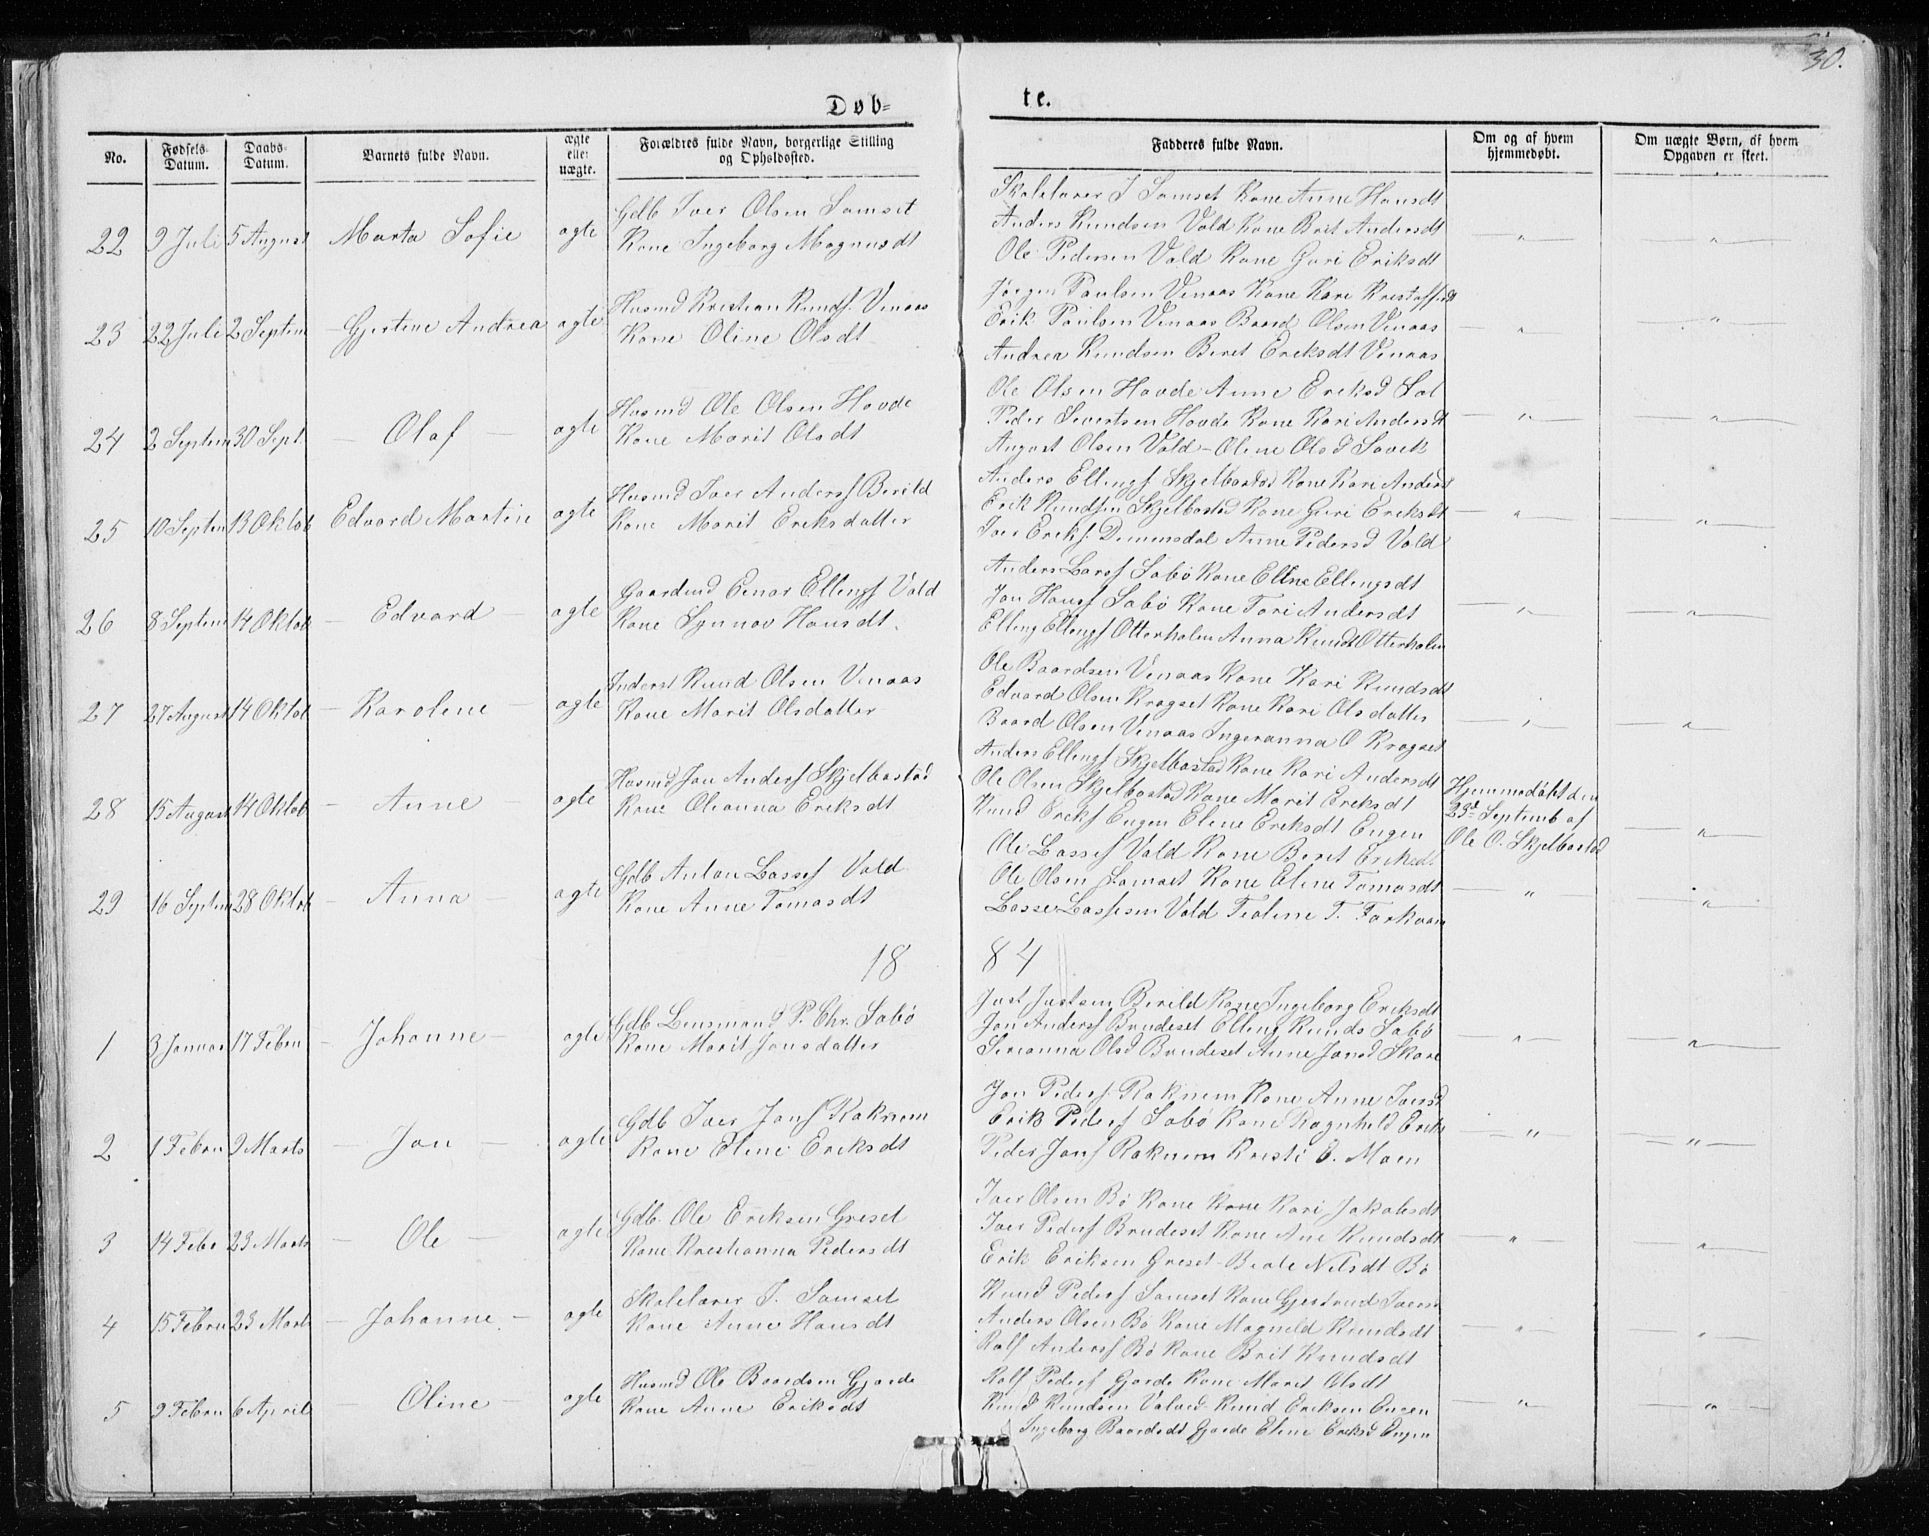 30.
Døb=
te.
No.
Fødsels-Datum.
Daabs-Datum.
Barnets fulde Navn.
ægte eller uægte.
Forældres fulde Navn, borgerlige Stilling og Opholdssted.
Fadderes fulde Navn.
Om og af hvem hjemmedøbt.
Om uægte Børn, af hvem Opgaven er skeet.
22 9 Juli 5 August Marta Sofie ægte
Gdb Iver Olsen Samset
Kone Ingeborg Magnusdt
Skolelærer I Samset Kone Anne Hansdt
Anders Knudsen Vold Kone Brit Andersdt
Ole Pedersen Vold Kone Guri Eriksdt
23 22 Juli 2 Septem Gjertine Andrea ægte
Husmd Kristian Knuds. Venaas
Kone Oline Olsdt
Jørgen Paulsen Venaas Kone Kari Kristoffsdt
Erik Paulsen Venaas Baard Olsen Venaas
Andrea Knudsen Beret Eriksdt Venaas
24 2 Septem 30 Sept. – Olaf – ægte
Husmd Ole Olsen Hovde
Kone Marit Olsdt
Ole Olsen Hovde Anne Eriksd Sol
Peder Sivertsen Hovde Kone Kari Andersdt
August Olsen Vold – Oline Olsd Søvik
25 10 Septem 13 Oktob Edvard Martin ægte
Husmd Iver Anders Berild
Kone Marit Eriksdatter
Anders Ellings Skjelbostad Kone Kari Andersd
Erik Knudsen Skjelbostad Kone Guri Eriksdt
Iver Eriks. Dimmesdal Anne Pedersd Vold
26 8 Septem 14 Oktob – Edvard – ægte
Gaardmd Einar Ellings Vold
Kone Synnøv Hansdt.
Anders Lars Sæbø Kone Eline Ellingsdt
Jon Hans Sæbø Kone Tori Andersdt
Elling Ellings Otterholm Anna Knudsdt Otterholm
27 27 August 14 Oktob – Karoline – ægte
Inderst Knud Olsen Venaas
Kone Marit Olsdatter
Ole Baardsen Venaas Kone Kari Knudsdt
Edvard Olsen Kragset Kone Kari Olsdatter
Baard Olsen Venaas Ingeranna O Kragset
28 15 August 14 Oktob – Anne – ægte
Husmd Jon Anders Skjelbostad
Kone Olianna Eriksdt
Anders Ellings Skjelbostad Kone Kari Andersdt
Ole Olsen Skjelbostad Kone Marit Eriksdt
Knud Eriks Engen Eline Eriksdt Engen
Hjemmedøbt den
23de Septemb af
Ole O. Skjelbostad
29 16 Septem 28 Oktob – Anna – ægte
Gdb Anton Lasses Vold
Kone Anne Tomasdt
Ole Lasses Vold Kone Beret Eriksdt
Ole Olsen Samset Kone Eline Tomasdt
Lasse Lassesen Vold Teoline T. Torkvam
18 84
1 3 Januar 17 Febru – Johanne – ægte
Gdb Lensmand P. Chr. Sæbø
Kone Marit Jonsdatter
Just Justsen Berild Kone Ingeborg Eriksdt
Jon Anders Brudeset Elling Knuds Sæbø
Serianna Olsd Brudeset Anne Jonsd Skare
2 1 Febru 9 Marts – Jon – ægte
Gdb Iver Jons Raknem
Kone Eline Eriksdt
Jon Peders Raknem Kone Anne Iversd
Erik Peders Sæbø Kone Ragnhild Eriks
Peder Jons Raknem Kristi E. Moen
3 14 Febr 23 Marts – Ole – ægte
Gdb. Ole Eriksen Greset
Kone Kristianna Pedersdt
Iver Olsen Bø Kone Kone Kari Jakobsdt
Iver Peders Brudeset Kone Ane Knudsdt
Erik Eriksen Greset – Beate Nilsdt Bø
4 15 Febru 23 Marts – Johanne – ægte
Skolelærer I. Samset
Kone Anne Hansdt
Knud Peders Samset Kone Gjertrud Iversd
Anders Olsen Bø Kone Magnild Knudsdt
Rolf Anders Bø Kone Brit Knudsdt
5 9 Febru 6 April – Oline – ægte
Husmd Ole Baardsen Gjørde
Kone Anne Eriksdt
Rolf Peders Gjørde Kone Marit Olsdt
Knud Knudsen Vold Knud Eriksen Engen
Ingeborg Baardsdt Gjørde Eline Eriksd Engen